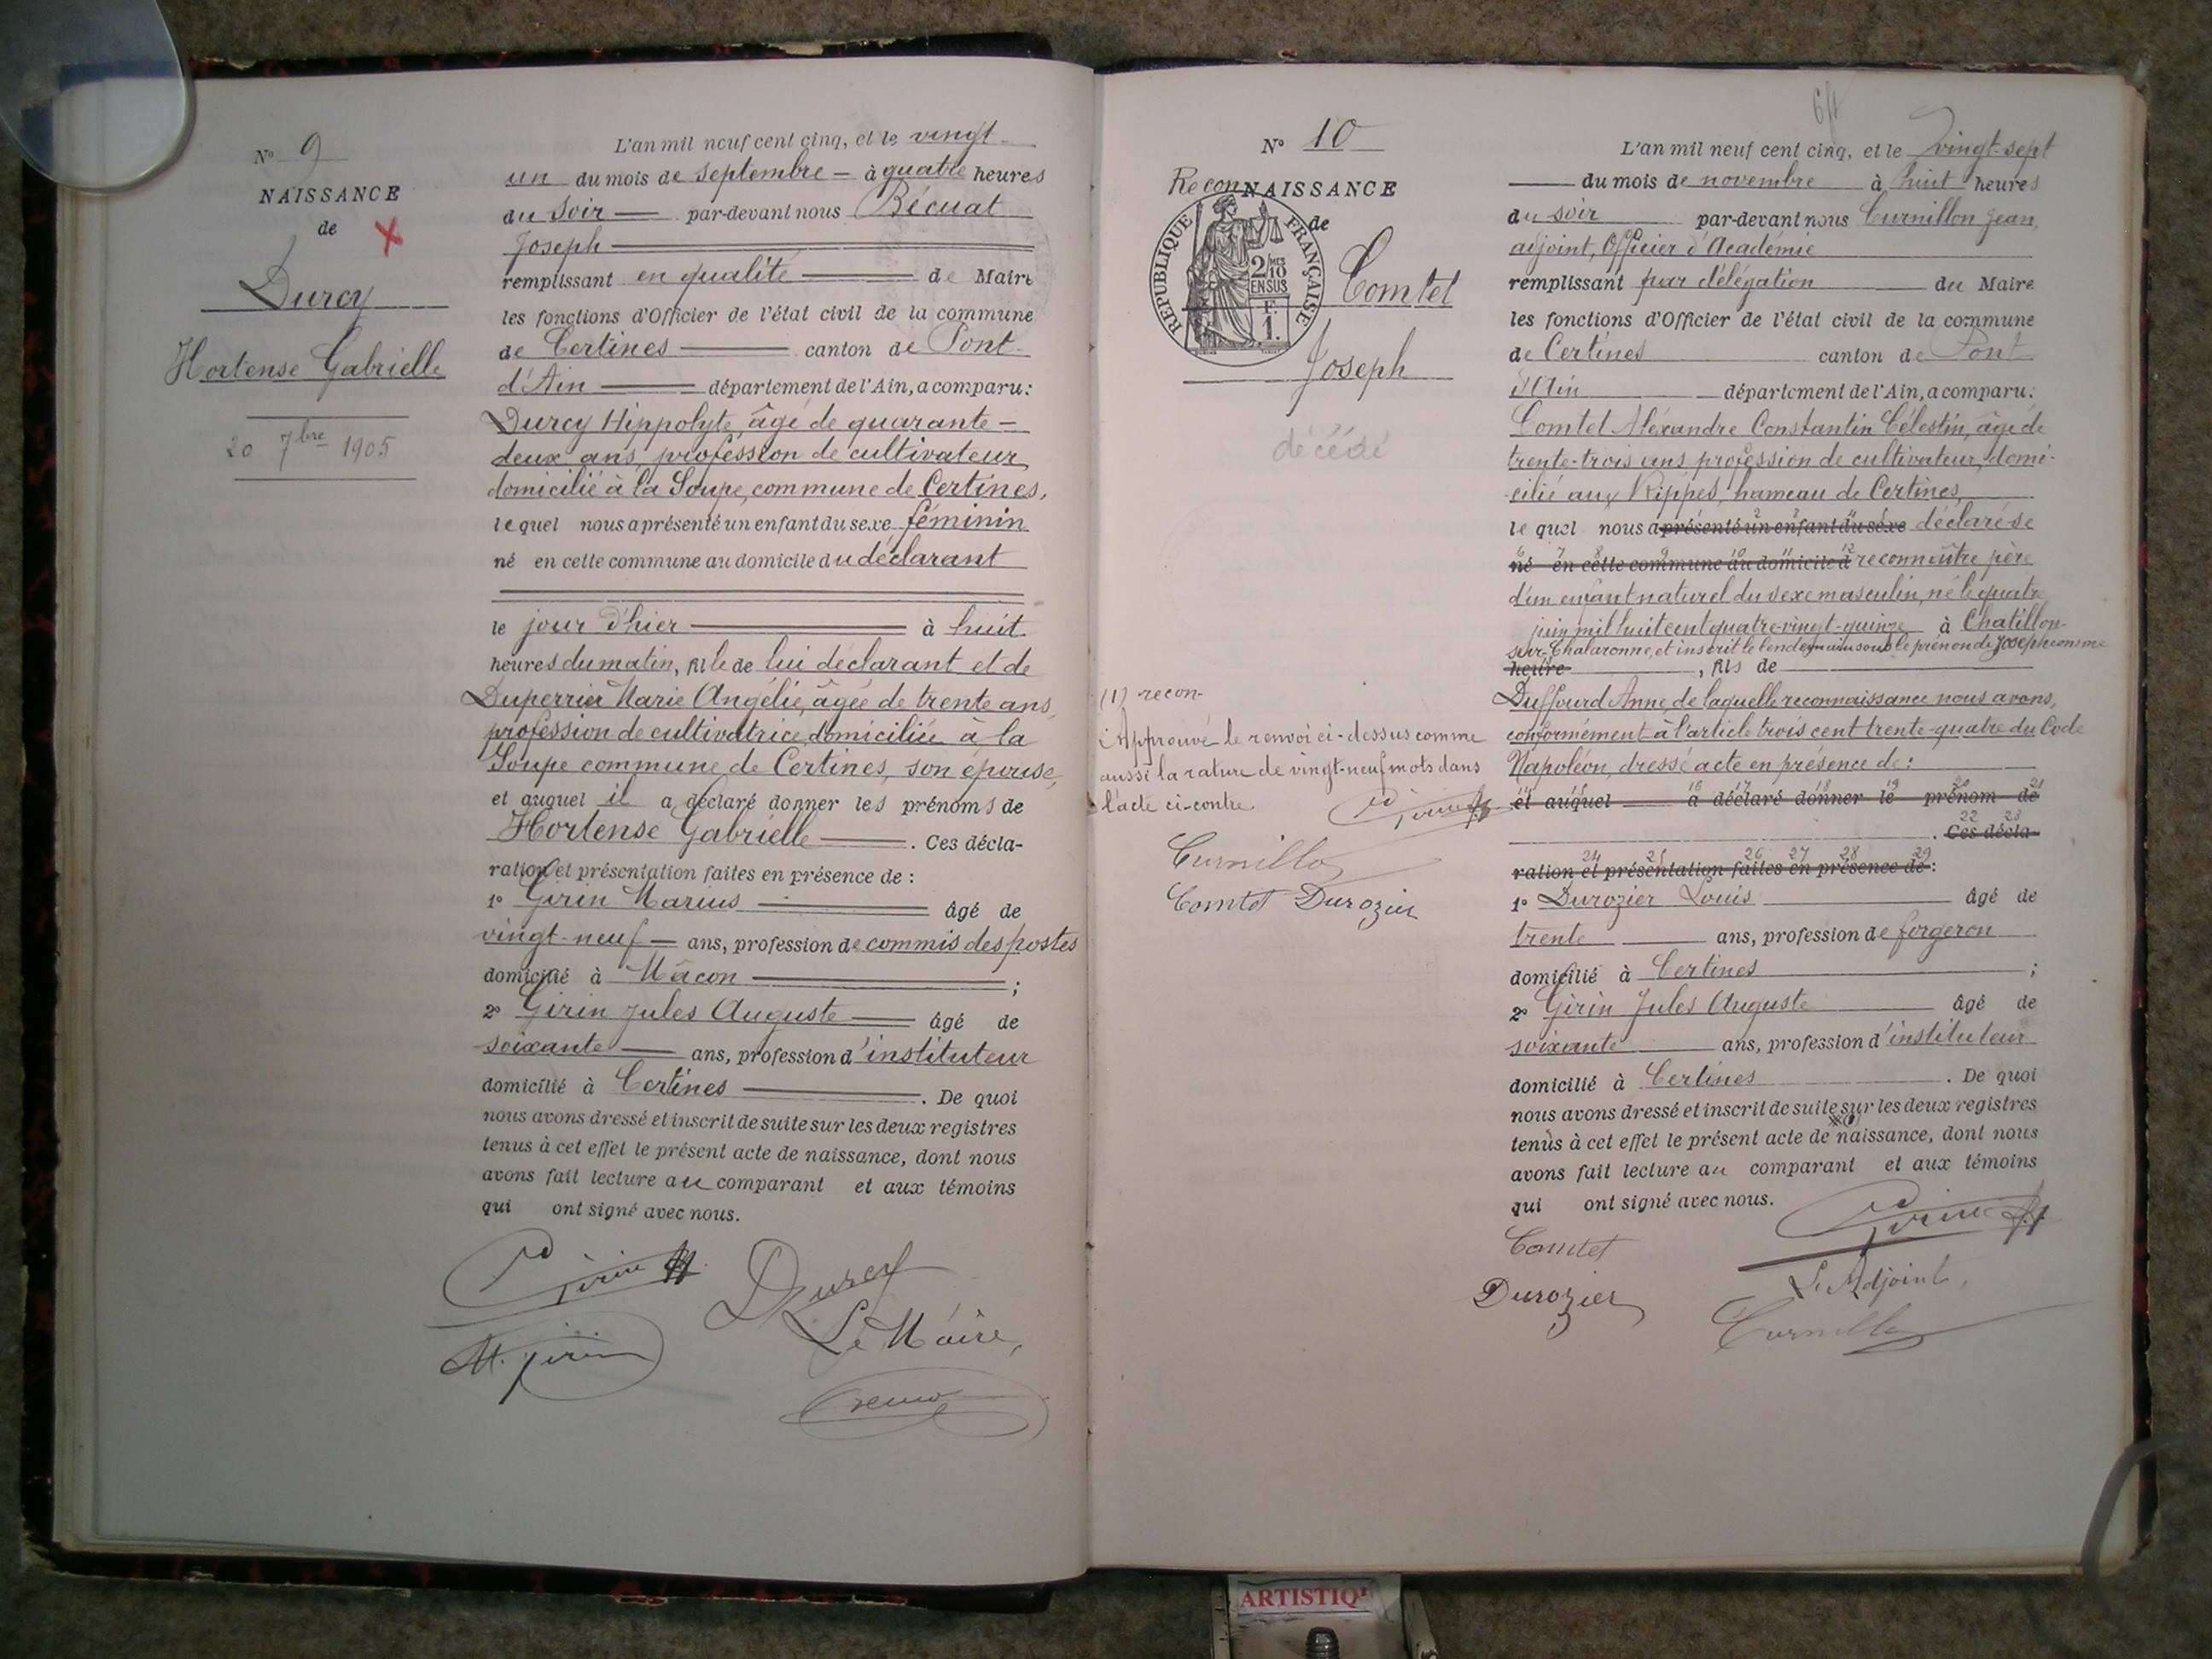 N° 9
NAISSANCE
de
Durcy
Hortense Gabrielle
20 7bre 1905
L'an mil neuf cent cinq, et le vingt
un du mois de septembre à quatre heures
du soir par-devant nous Bécuat
Joseph
remplissant en qualité de Maire
les fonctions d'Officier de l'état civil de la commune
de Certines canton de Pont
d'Ain département de l'Ain, a comparu:
Durcy Hippolyte, âgé de quarante-
deux ans, profession de cultivateur
domicilié à la Soupe, commune de Certines,
lequel nous a présenté un enfant du sexe féminin
né en cette commune au domicile du déclarant
le jour d'hier à huit
heures du matin, fille de lui déclarant et de
Duperrier Marie Angélie, âgée de trente ans,
profession de cultivatrice, domiciliée à la
Soupe commune de Certines, son épouse,
et auquel il a déclaré donner les prénoms de
Hortense Gabrielle. Ces décla-
ration et présentation faites en présence de :
1° Girin Marius âgé de
vingt-neuf ans, profession de commis des postes
domicilié à Mâcon ;
2° Girin Jules Auguste âgé de
soixante ans, profession d'instituteur
domicilié à Certines. De quoi
nous avons dressé et inscrit de suite sur les deux registres
tenus à cet effet le présent acte de naissance, dont nous
avons fait lecture au comparant et aux témoins
qui ont signé avec nous.
Girin
Durcy
Le Maire,
M. Girin
N° 10
ReconNAISSANCE
de
REPUBLIQUE FRANÇAISE
2/10
EN SUS
F.
1.
Comtet
Joseph
décédé
(1) recon-
Approuvé le renvoi ci-dessus comme
aussi la rature de vingt-neuf mots dans
l'acte ci-contre
Girin
Curnillon
Comtet Durozier
64
L'an mil neuf cent cinq, et le vingt-sept
du mois de novembre à huit heures
du soir par-devant nous Curnillon Jean,
adjoint, Officier d'Académie
remplissant par délégation du Maire
les fonctions d'Officier de l'état civil de la commune
de Certines canton de Pont
d'Ain département de l'Ain, a comparu:
Comtet Aléxandre Constantin Célestin, âgé de
trente-trois ans profession de cultivateur, domi-
cilié aux Rippes, hameau de Certines,
lequel nous a présenté un enfant du sexe déclaré se
né en cette commune au domicile d reconnaître père
d'un enfant naturel du sexe masculin, né le quatre
juin mil huit cent quatre-vingt-quinze à Chatillon-
sur-Chalaronne, et inscrit le lendemain sous le prénom de Joseph comme
heure, fils de
Duffourd Anne, de laquelle reconnaissance nous avons,
conformément à l'article trois cent trente-quatre du Code
Napoléon, dressé acte en présence de :
et auquel a déclaré donner le prénom de
. Ces décla-
ration et présentation faites en présence de :
1° Durozier Louis âgé de
trente ans, profession de forgeron
domicilié à Certines ;
2° Girin Jules Auguste âgé de
soixante ans, profession d'instituteur
domicilié à Certines. De quoi
nous avons dressé et inscrit de suite sur les deux registres
(1)
tenus à cet effet le présent acte de naissance, dont nous
avons fait lecture au comparant et aux témoins
qui ont signé avec nous.
Comtet
Girin
Durozier
Le Adjoint,
Curnillon
ARTISTIQ